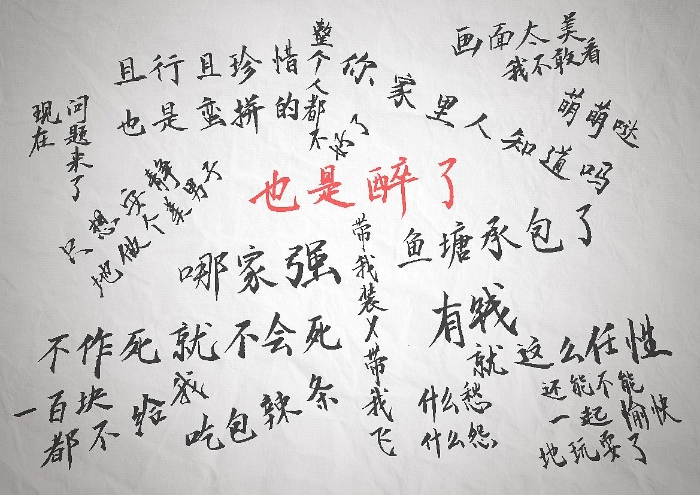 且行且珍惜
也是蛮拼的
整个人都不好了
你家里人知道吗
画面太美
我不敢看
萌萌哒
现在
问题来了
只想安静
地做个美男子
也是醉了
哪家强
带我装X带我飞
鱼塘承包了
有钱
就这么任性
不作死就不会死
一百块
都不给我
吃包辣条
什么愁
什么怨
还能不能
一起愉快
地玩耍了